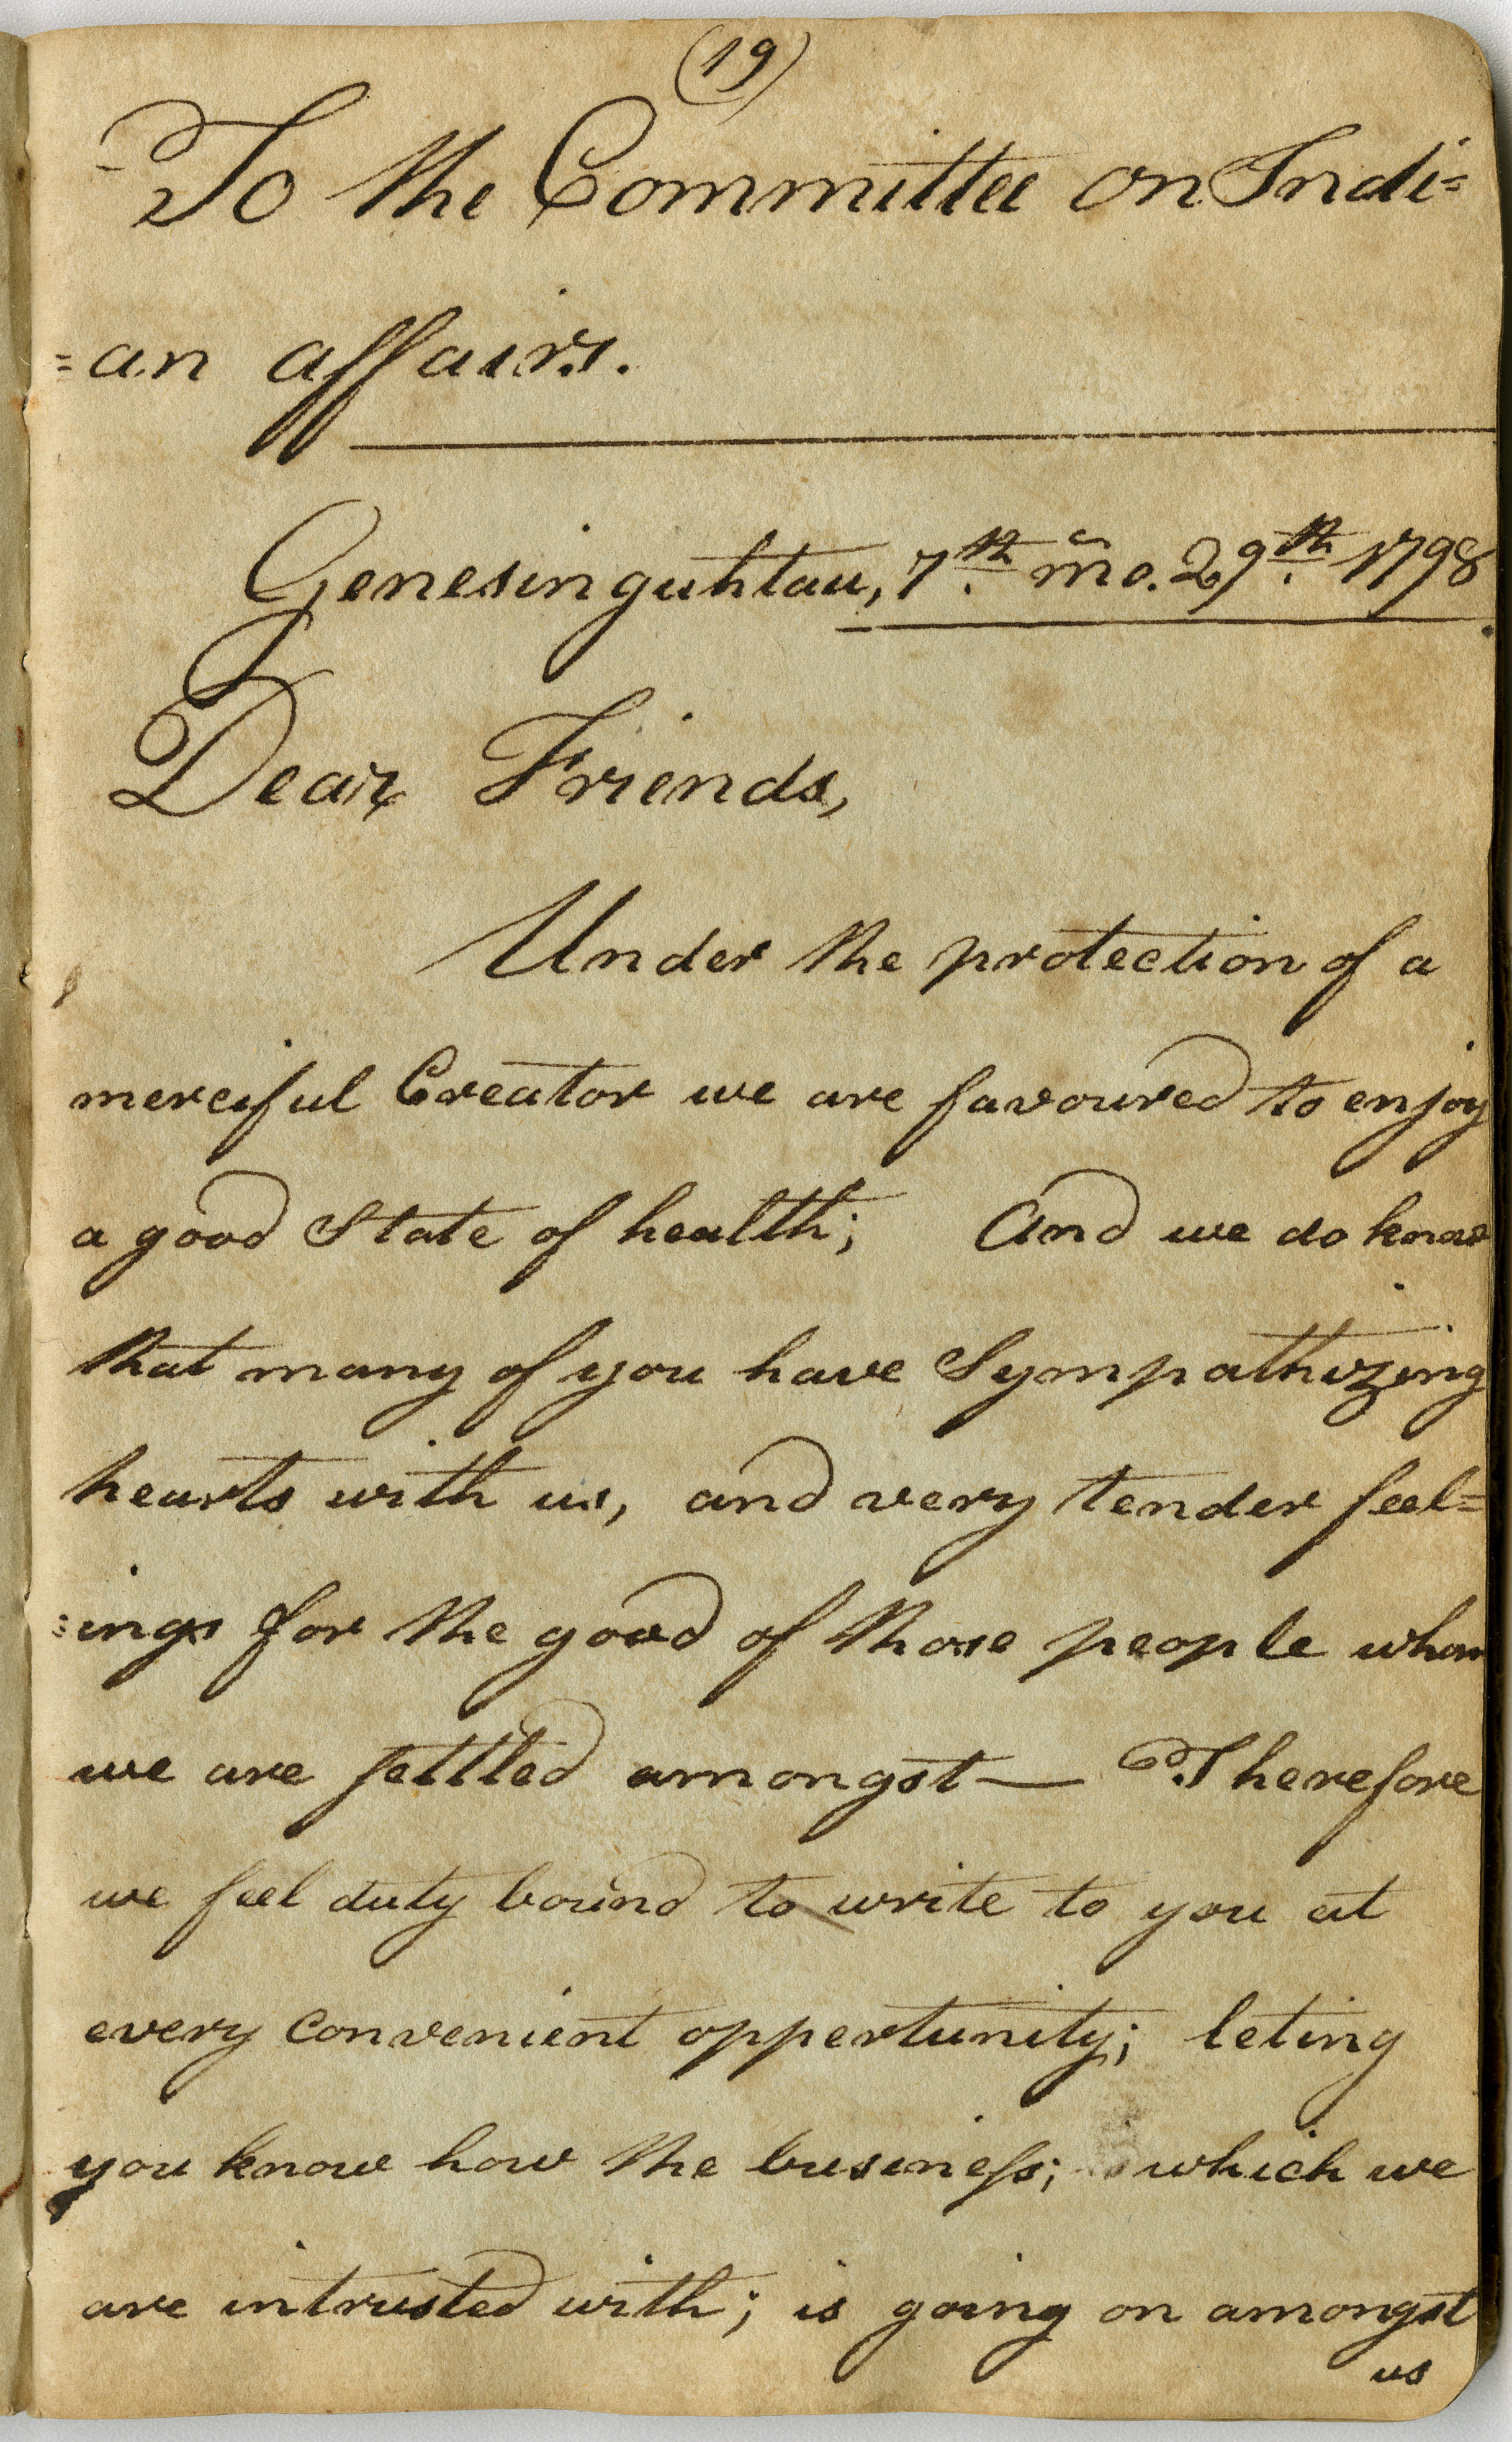 (19)
To the Committee on Indi=
=an affairs.
Genesinguhtau, 7th. mo. 29th. 1798.
Dear Friends,
Under the protection of a
merciful Creator we are favoured to enjoy
a good State of health; And we do know
that many of you have Sympathizing
hearts with us, and very tender feel=
=ings for the good of those people whom
we are settled amongst — Therefore
we feel duty bound to write to you at
every convenient oppertunity; leting
you know how the business; which we
are intrusted with; is going on amongst
us